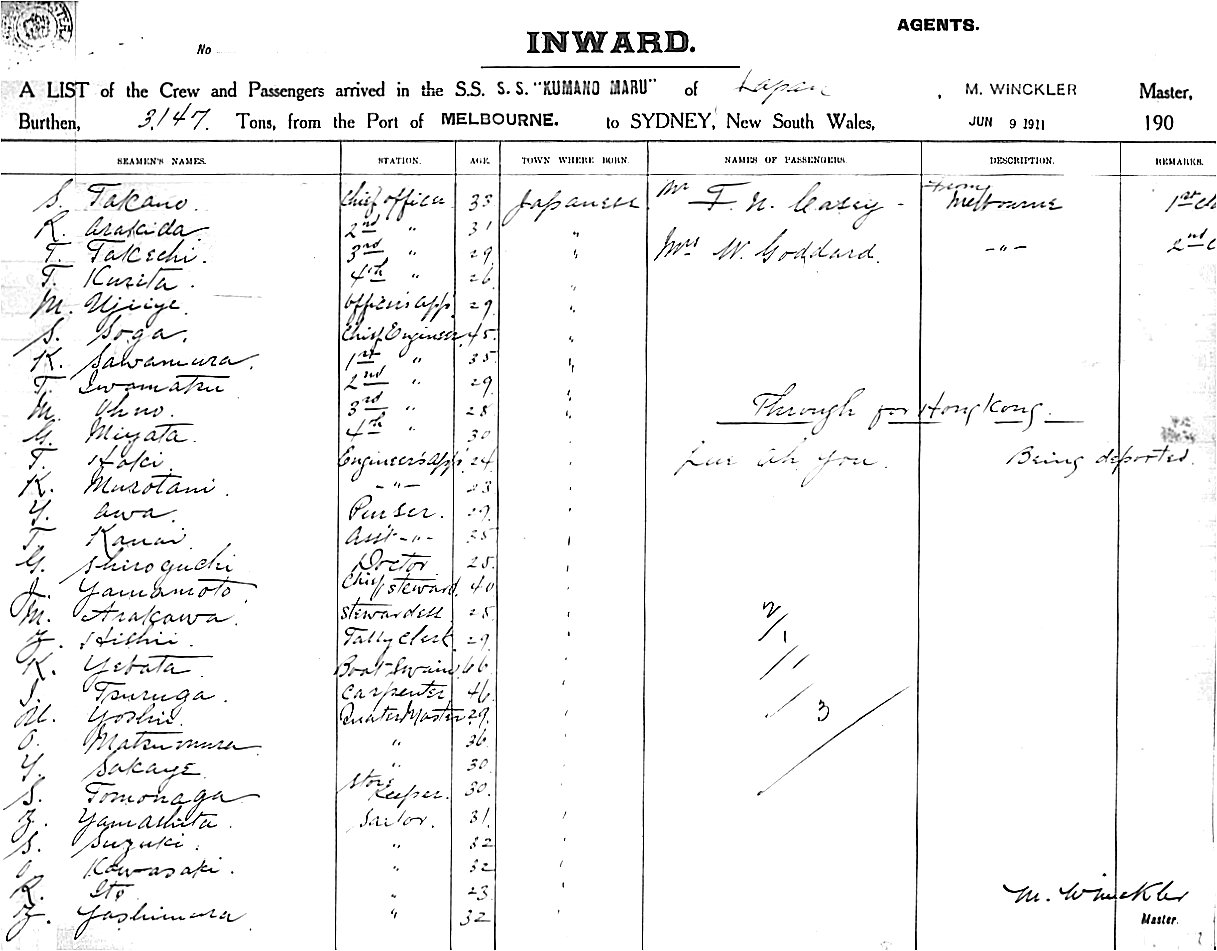 AGENTS.
No
INWARD.
A LIST of the Crew and Passengers arrived in the S.S. S. S. "KUMANO MARU" of Japan, M. WINCKLER Master,
Burthen, 3147. Tons, from the Port of MELBOURNE. to SYDNEY, New South Wales, JUN 9 1911 190
SEAMEN'S NAMES. STATION. AGE. TOWN WHERE BORN. NAMES OF PASSENGERS. DESCRIPTION. REMARKS.
S. Takano. Chief officer 33 Japanese Mr F. N. Casey - From Melbourne 1st Cla
R. Arakida 2nd " 31 "
T. Takechi. 3rd " 29 " Mrs W. Goddard. -"- 2nd C
T. Kurita. 4th " 26 "
M. Ujiiye. officer's app. 29 "
S. Soga. Chief Engineer 45. "
K. Sawamura. 1st " 35 "
T. Iwamatu 2nd " 29 "
M. Ohno. 3rd " 28 " Through for Hong Kong.
G. Miyata. 4th " 30 "
T. Hoki. Engineer's app's 24 " Ah You. Being deported.
K. Murotani. -"- 23 "
Y. Awa. Purser. 29 "
T. Kanai. Ass't -"- 35 "
G. Shiroguchi Doctor 25. "
J. Yamamoto. Chief steward. 40 "
M. Arakawa. Stewardess. 25 "
Z. Hishii. Tally Clerk 29 "
K. Yebata Boat Swain 46 "
Tsuruga. Carpenter 46 "
M. Yoshii. Quater Master 29. " 3
O. Matsumura " 36 "
Y. Sakaye. " 30 "
S. Tomonaga Store Keeper. 30. "
Z. Yamashita. Sailor. 31. "
S. Suzuki. " 32 "
Kawasaki. " 32 "
R. Ito " 23 " M. Winckler
Z. Yoshimura " 32 " Master.